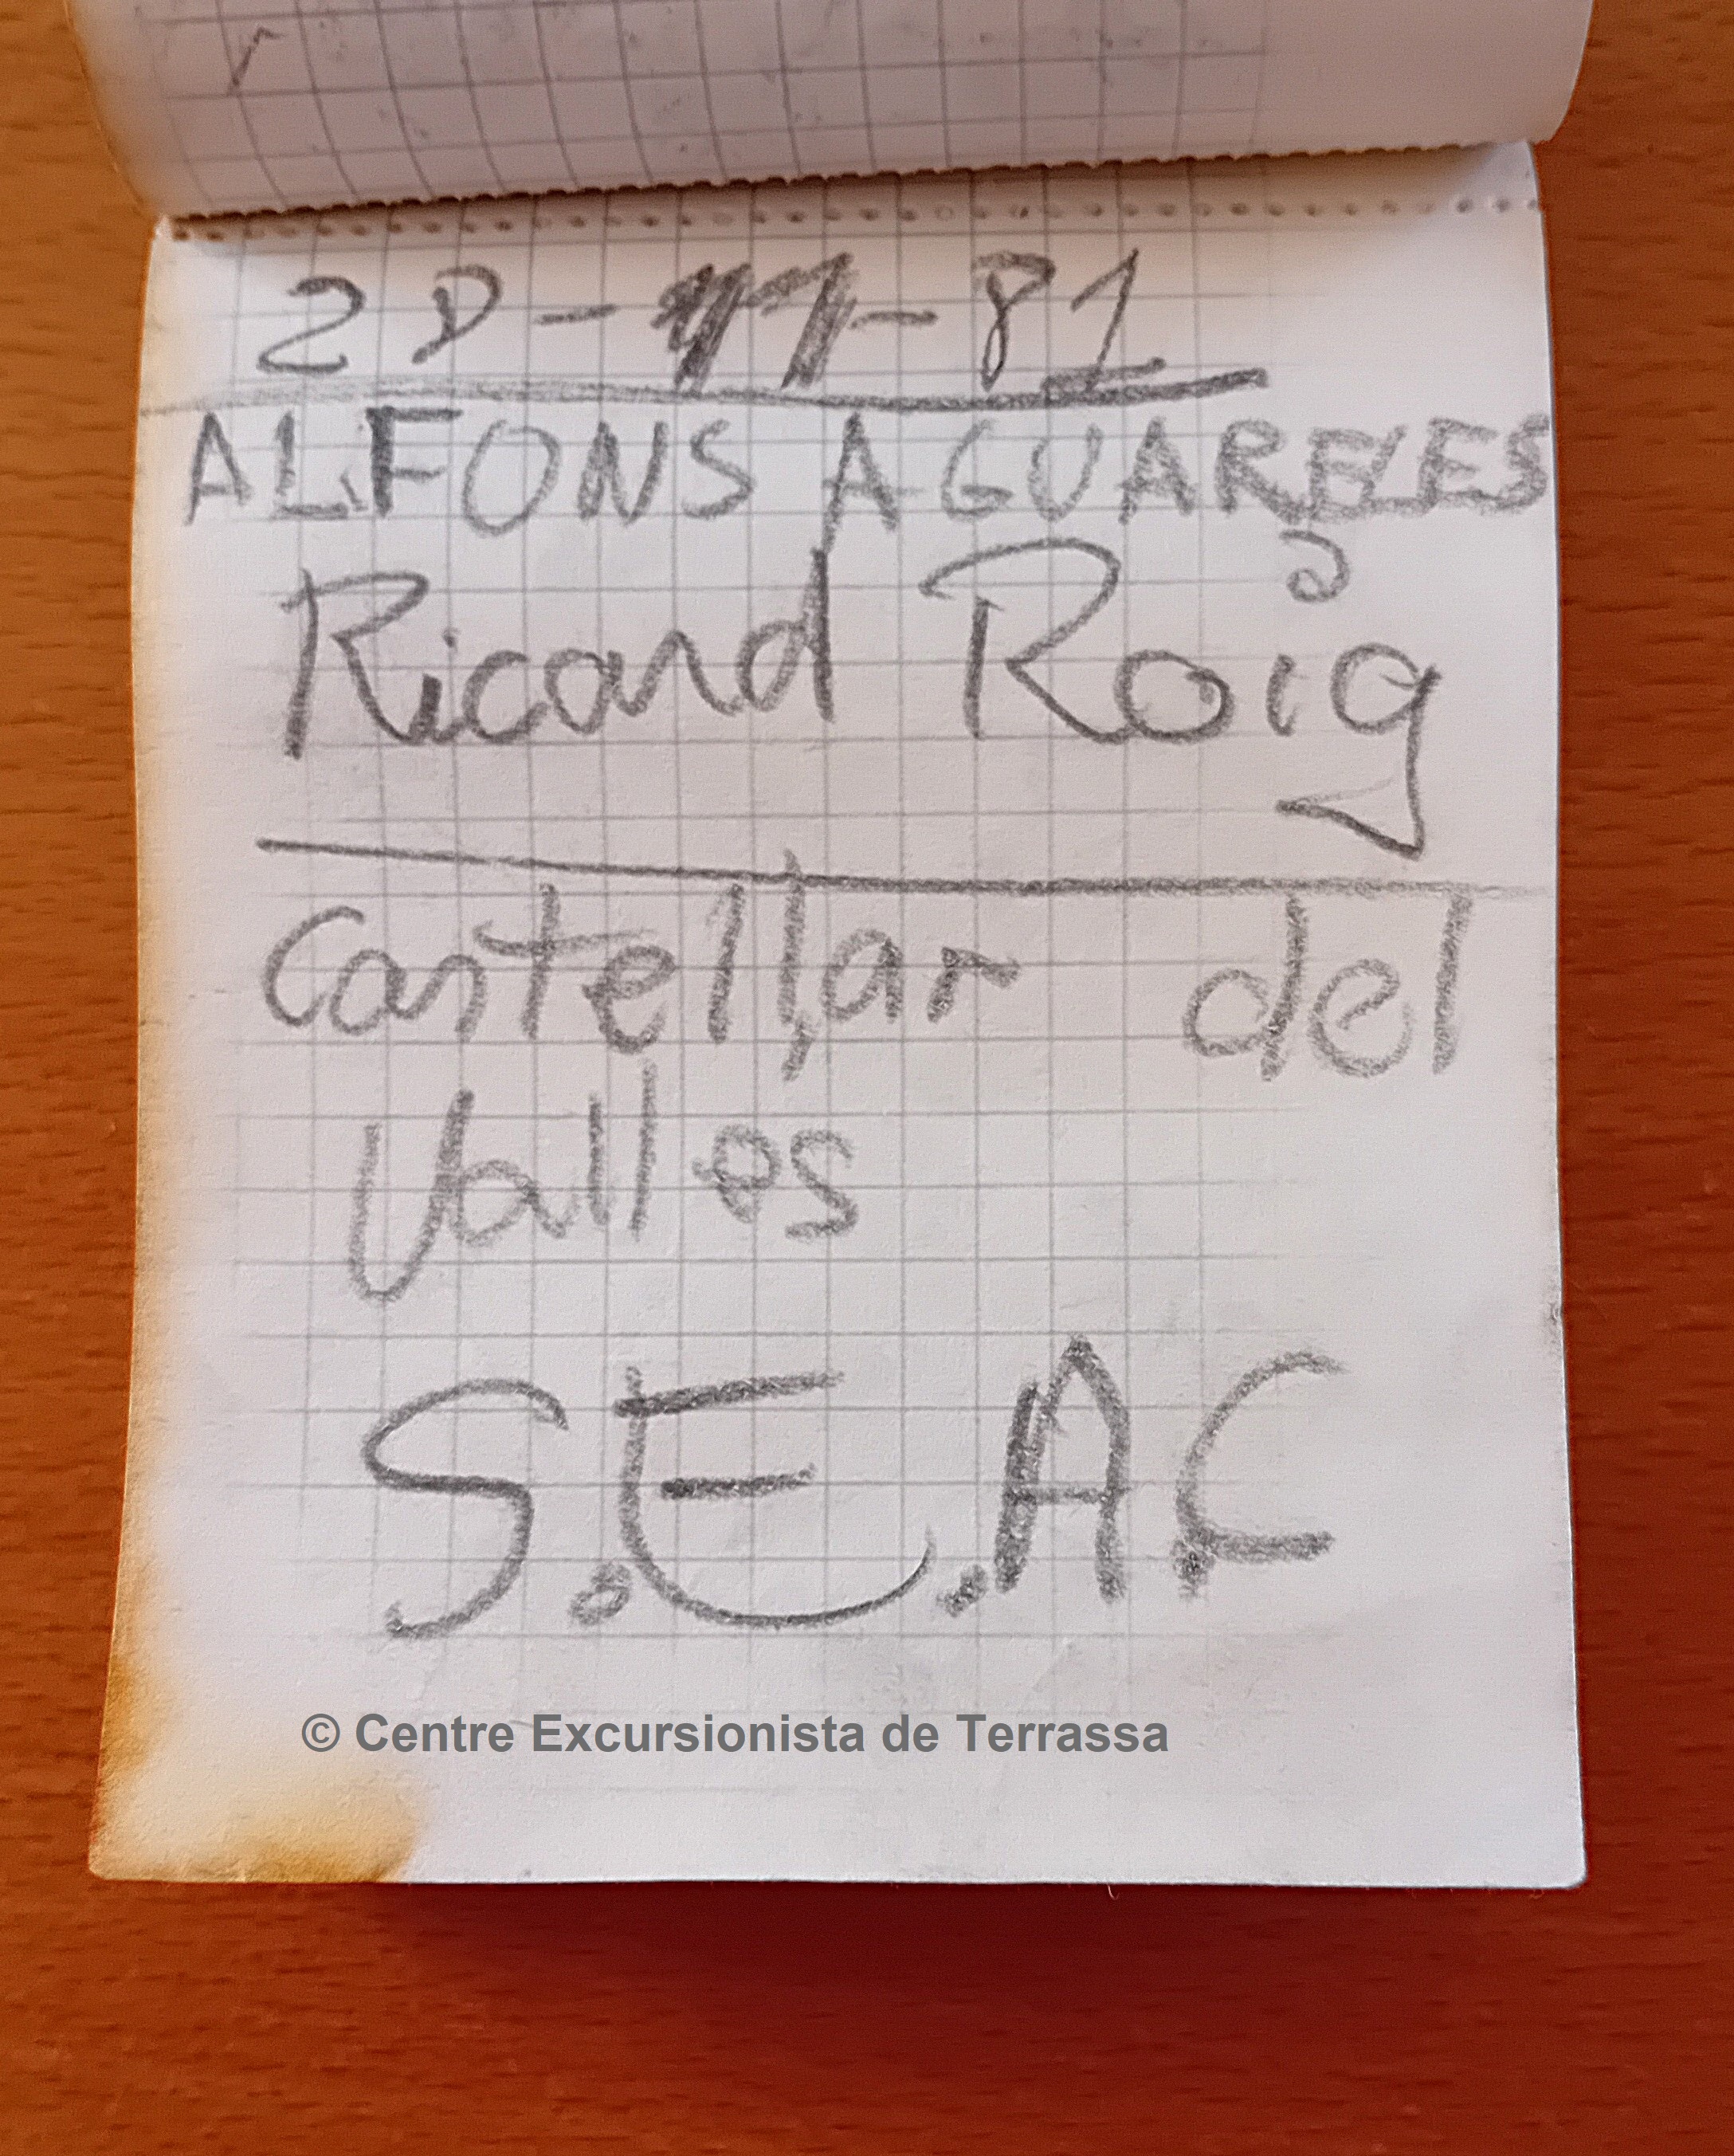 28-11-81
ALFONS AGUARELES
Ricard Roig
Castellar del
Valles
S.E.AC
© Centre Excursionista de Terrassa